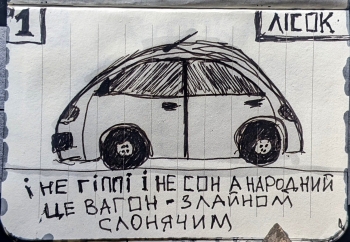 1
ЛІСОК
І НЕ ГІППІ І НЕ СОН А НАРОДНИЙ
ЦЕ ВАГОН - З ЛАЙНОМ
СЛОНЯЧИМ